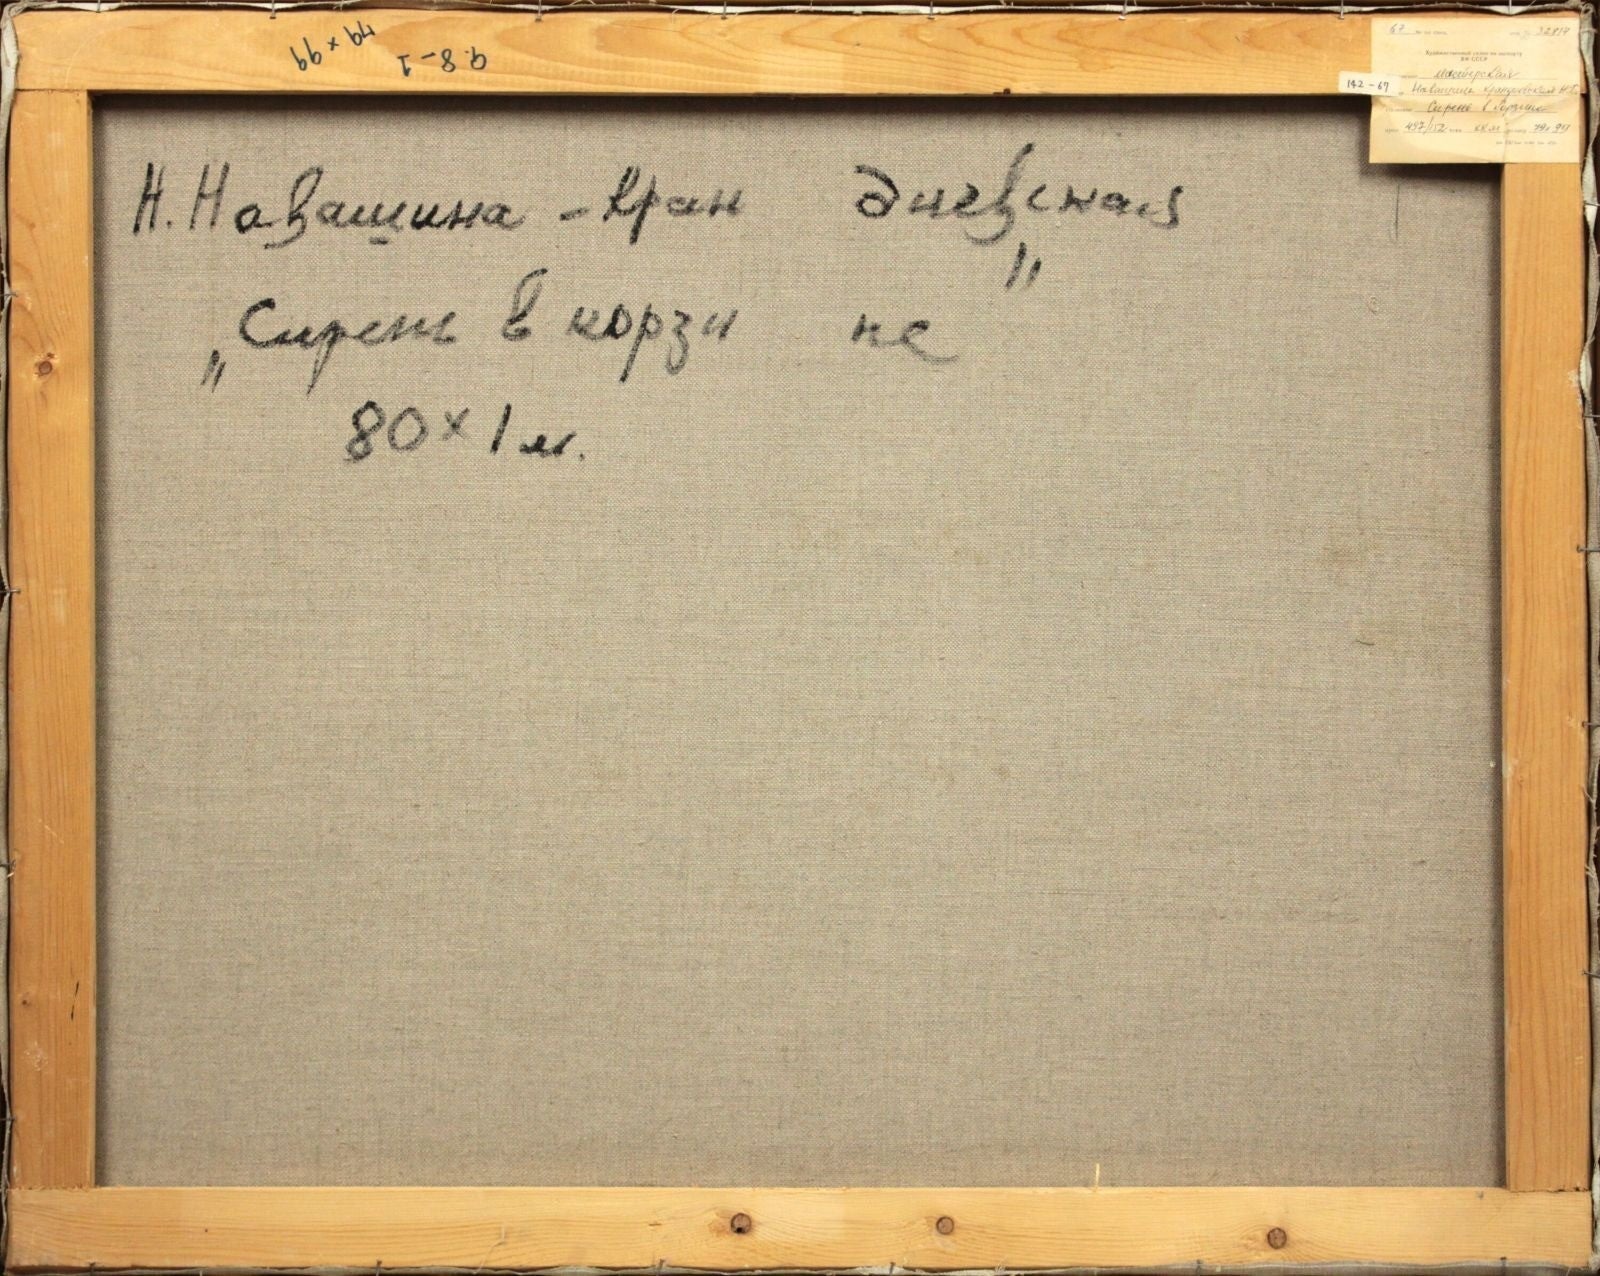 79 × 99
9.8-1
67 32817
Художественный салон по экспорту
ХФ СССР
мастерская
142-67
Навашина Крандиевская Н.П.
Сирень в корзине
497/152 х.к.м. 79х99
Н. Навашина - Кран диевская
„Сирень в корзи не"
80 × 1 м.